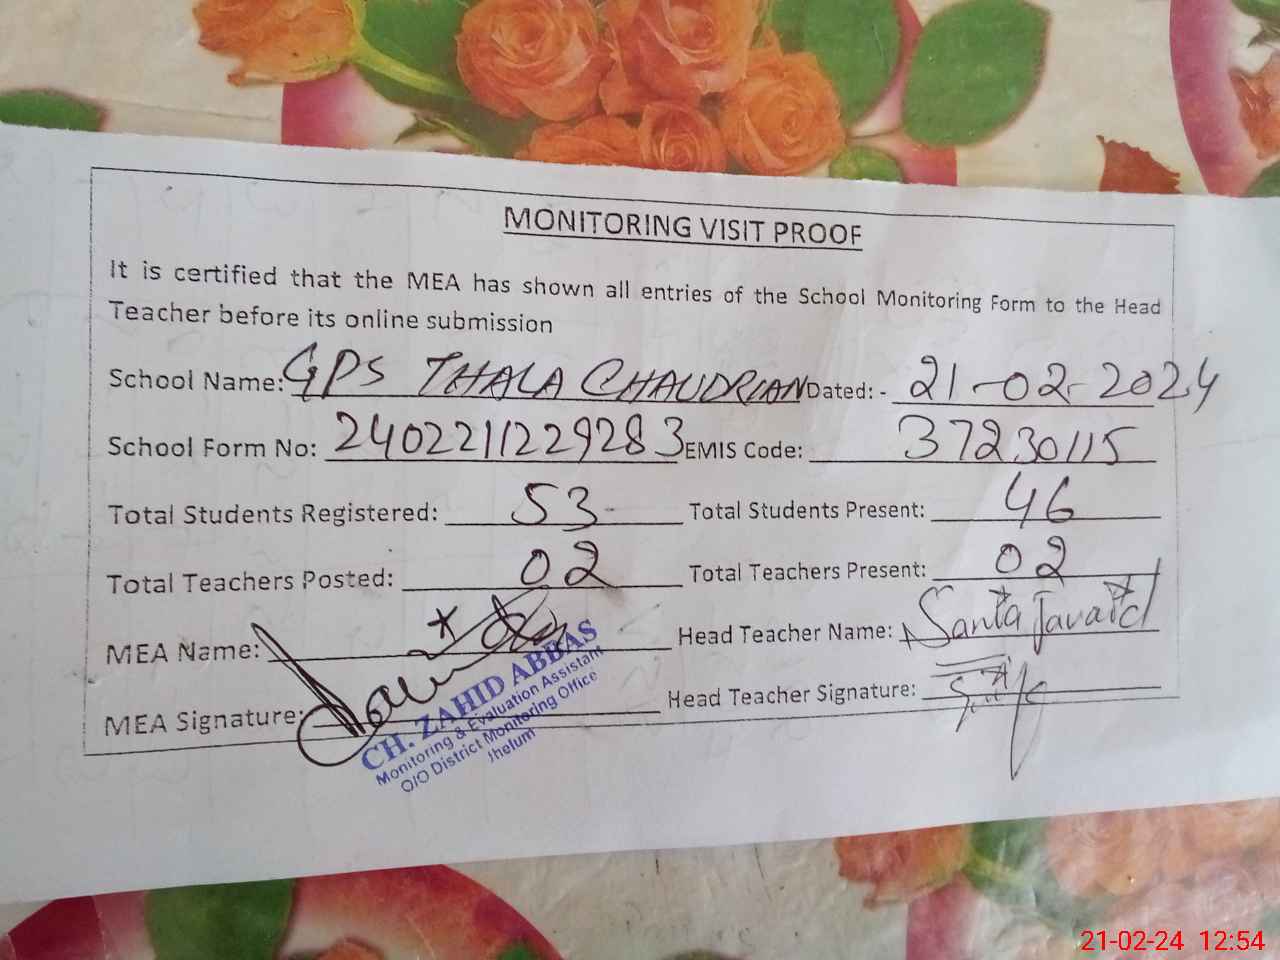 MONITORING VISIT PROOF
It is certified that the MEA has shown all entries of the School Monitoring Form to the Head
Teacher before its online submission
School Name: GPS THALA CHAUDRIAN Dated: - 21-02-2024
School Form No: 2402211229283 EMIS Code: 37230115
Total Students Registered: 53 Total Students Present: 46
Total Teachers Posted: 02 Total Teachers Present: 02
MEA Name: Head Teacher Name: Santa Javaid
MEA Signature: Head Teacher Signature:
CH. ZAHID ABBAS
Monitoring & Evaluation Assistant
O/O District Monitoring Office
Jhelum
21-02-24 12:54